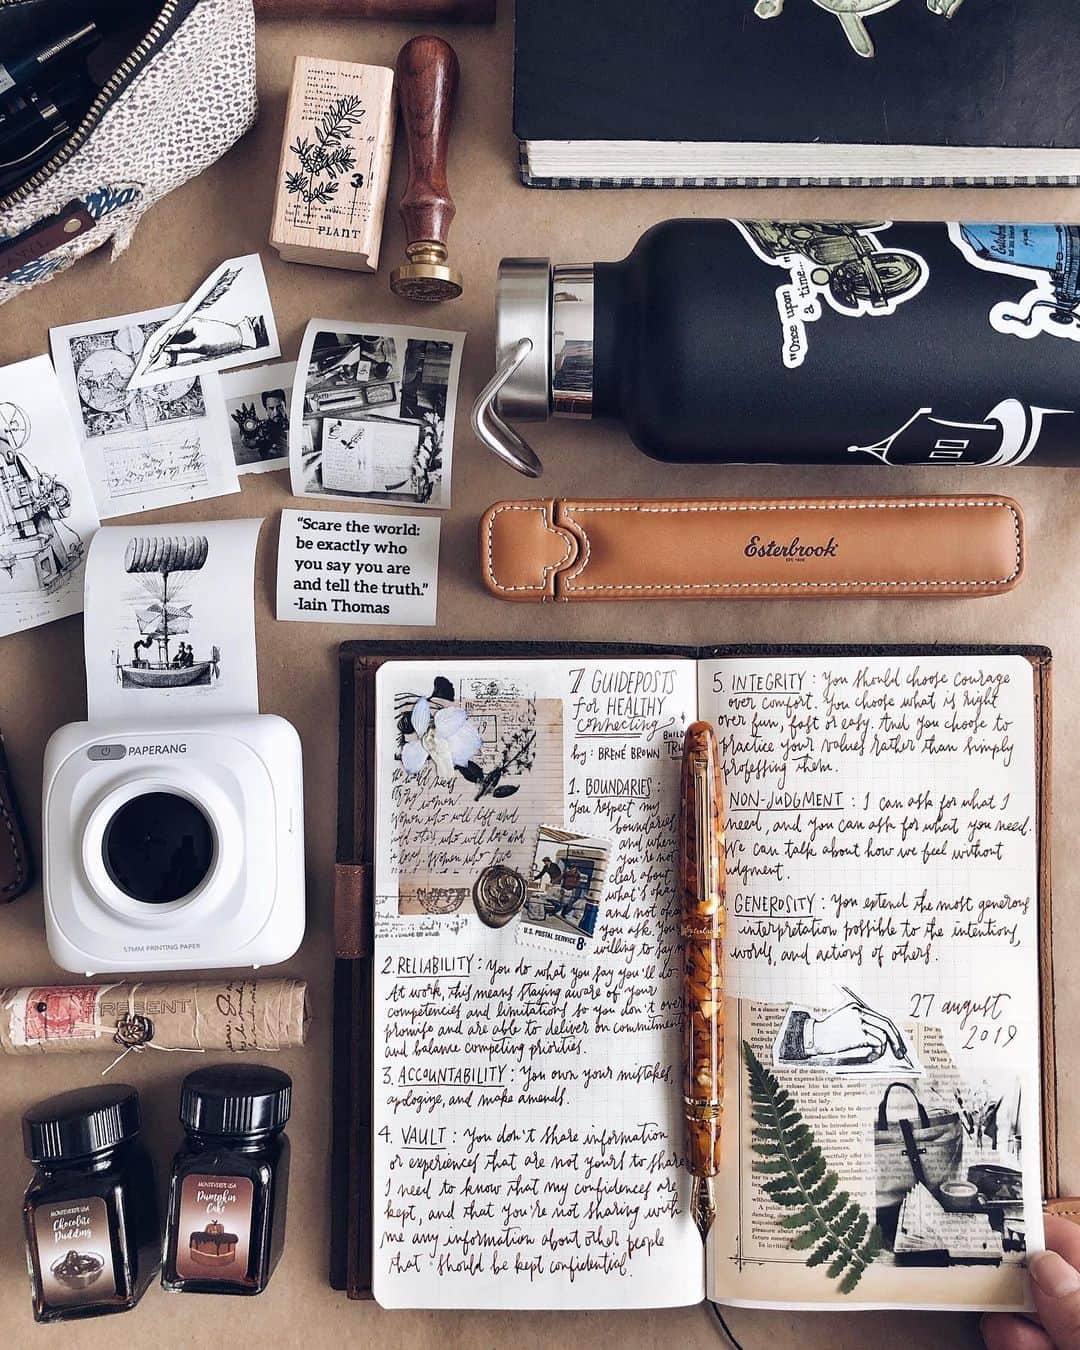 3
PLANT
"Once upon
a
time..."
Esterbrook
"Scare the world:
be exactly who
you say you are
and tell the truth."
-Iain Thomas
PAPERANG
57MM PRINTING PAPER
PRESENT
MONTEVERDE USA
Chocolate
Pudding
MONTEVERDE USA
Pumpkin
Cake
7 GUIDEPOSTS
for HEALTHY
connecting &
by: BRENÉ BROWN
1. BOUNDARIES:
You respect my
boundaries,
and when
you're not
clear about
what's okay
and not okay
you ask. You're
willing to say n
U.S. POSTAL SERVICE 8¢
2. RELIABILITY: You do what you say you'll do.
At work, this means staying aware of your
competencies and limitations so you don't over
promise and are able to deliver on commitments
and balance competing priorities.
3. ACCOUNTABILITY: You own your mistakes,
apologize, and make amends.
4. VAULT: You don't share information
or experiences that are not yours to share
I need to know that my confidences are
kept, and that you're not sharing with
me any information about other people
that should be kept confidential.
5. INTEGRITY: You should choose courage
over comfort. You choose what is right
over fun, fast or easy. And you choose to
practice your values rather than simply
professing them.
NON-JUDGMENT: I can ask for what I
need, and you can ask for what you need.
We can talk about how we feel without
judgment.
GENEROSITY: You extend the most generous
interpretation possible to the intentions,
words, and actions of others.
27 august
2019
Esterbrook